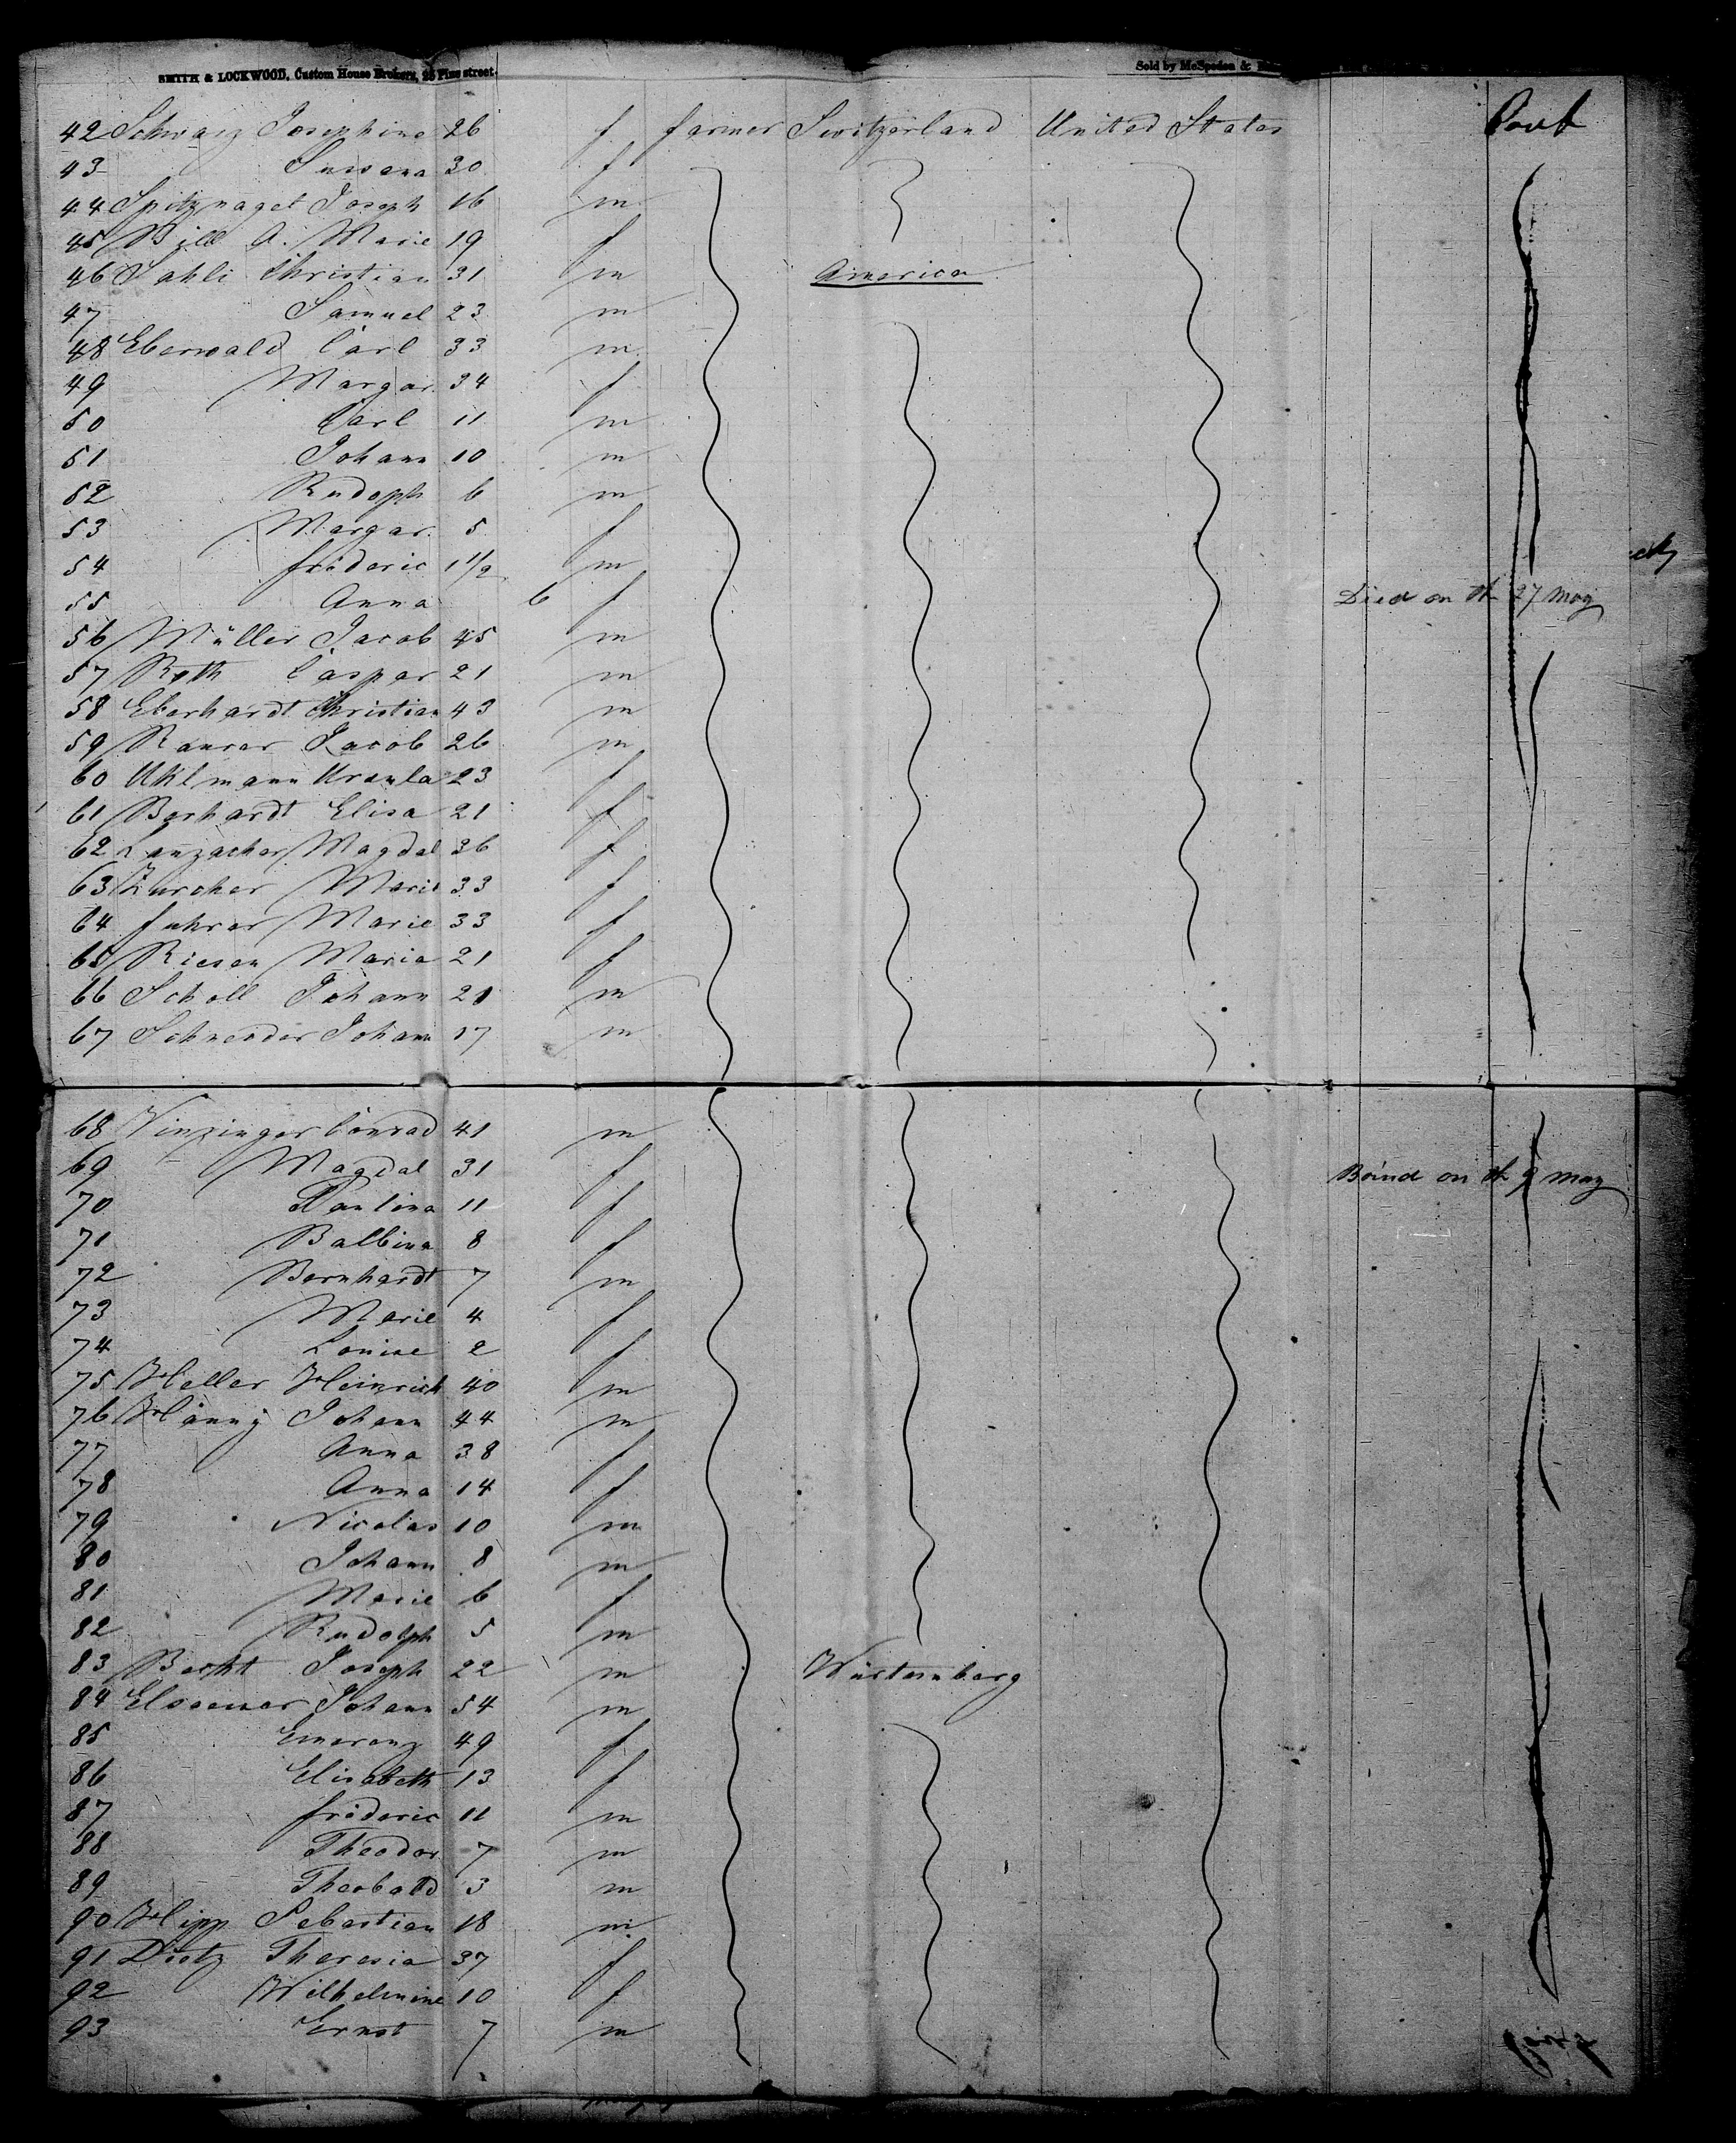 SMITH & LOCKWOOD, Custom House Brokers, 25 Pine street. Sold by McSpedon &
42 Schwarz Josephine 26 f farmer Switzerland United States
43 Susana 30 f
44 Spitznagel Joseph 16 m
45 A. Marie 19 f
46 Sahli Christian 31 m America
47 Samuel 23 m
48 Eberwald Carl 33 m
49 Margar. 34 f
50 Carl 11 m
51 Johann 10 m
52 Rudoph 6 m
53 Margar. 5 f
54 frederic 1 1/2 m
55 Anna 6 f Died on th 27 may
56 Müller Jacob 45 m
57 Roth Caspar 21 m
58 Eberhardt Christian 43 m
59 Jacob 26 m
60 Uhlmann Ursula 23 f
61 Berhardt Elisa 21 f
62 Magdal 36 f
63 Zurcher Marie 33 f
64 fuhrer Marie 33 f
65 Riesen Maria 21 f
66 Scholl Johann 21 m
67 Schneider Johann 17 m
68 Conrad 41 m
69 Magdal 31 f on th 9 may
70 Paulina 11 f
71 Balbina 8 f
72 Bernhardt 7 m
73 Marie 4 f
74 Louise 2 f
75 Heller Heinrich 40 m
76 Hänny Johann 44 m
77 Anna 38 f
78 Anna 14 f
79 Nicolas 10 m
80 Johann 8 m
81 Marie 6 f
82 Rudolph 5 m
83 Joseph 22 m Würtemberg
84 Johann 54 m
85 Emerenz 49 f
86 Elisabeth 13 f
87 frederic 11 m
88 Theodor 7 m
89 Theobald 3 m
90 Hipp Sebastian 18 m
91 Dietz Theresia 37 f
92 Wilhelmine 10 f
93 Ernst 7 m